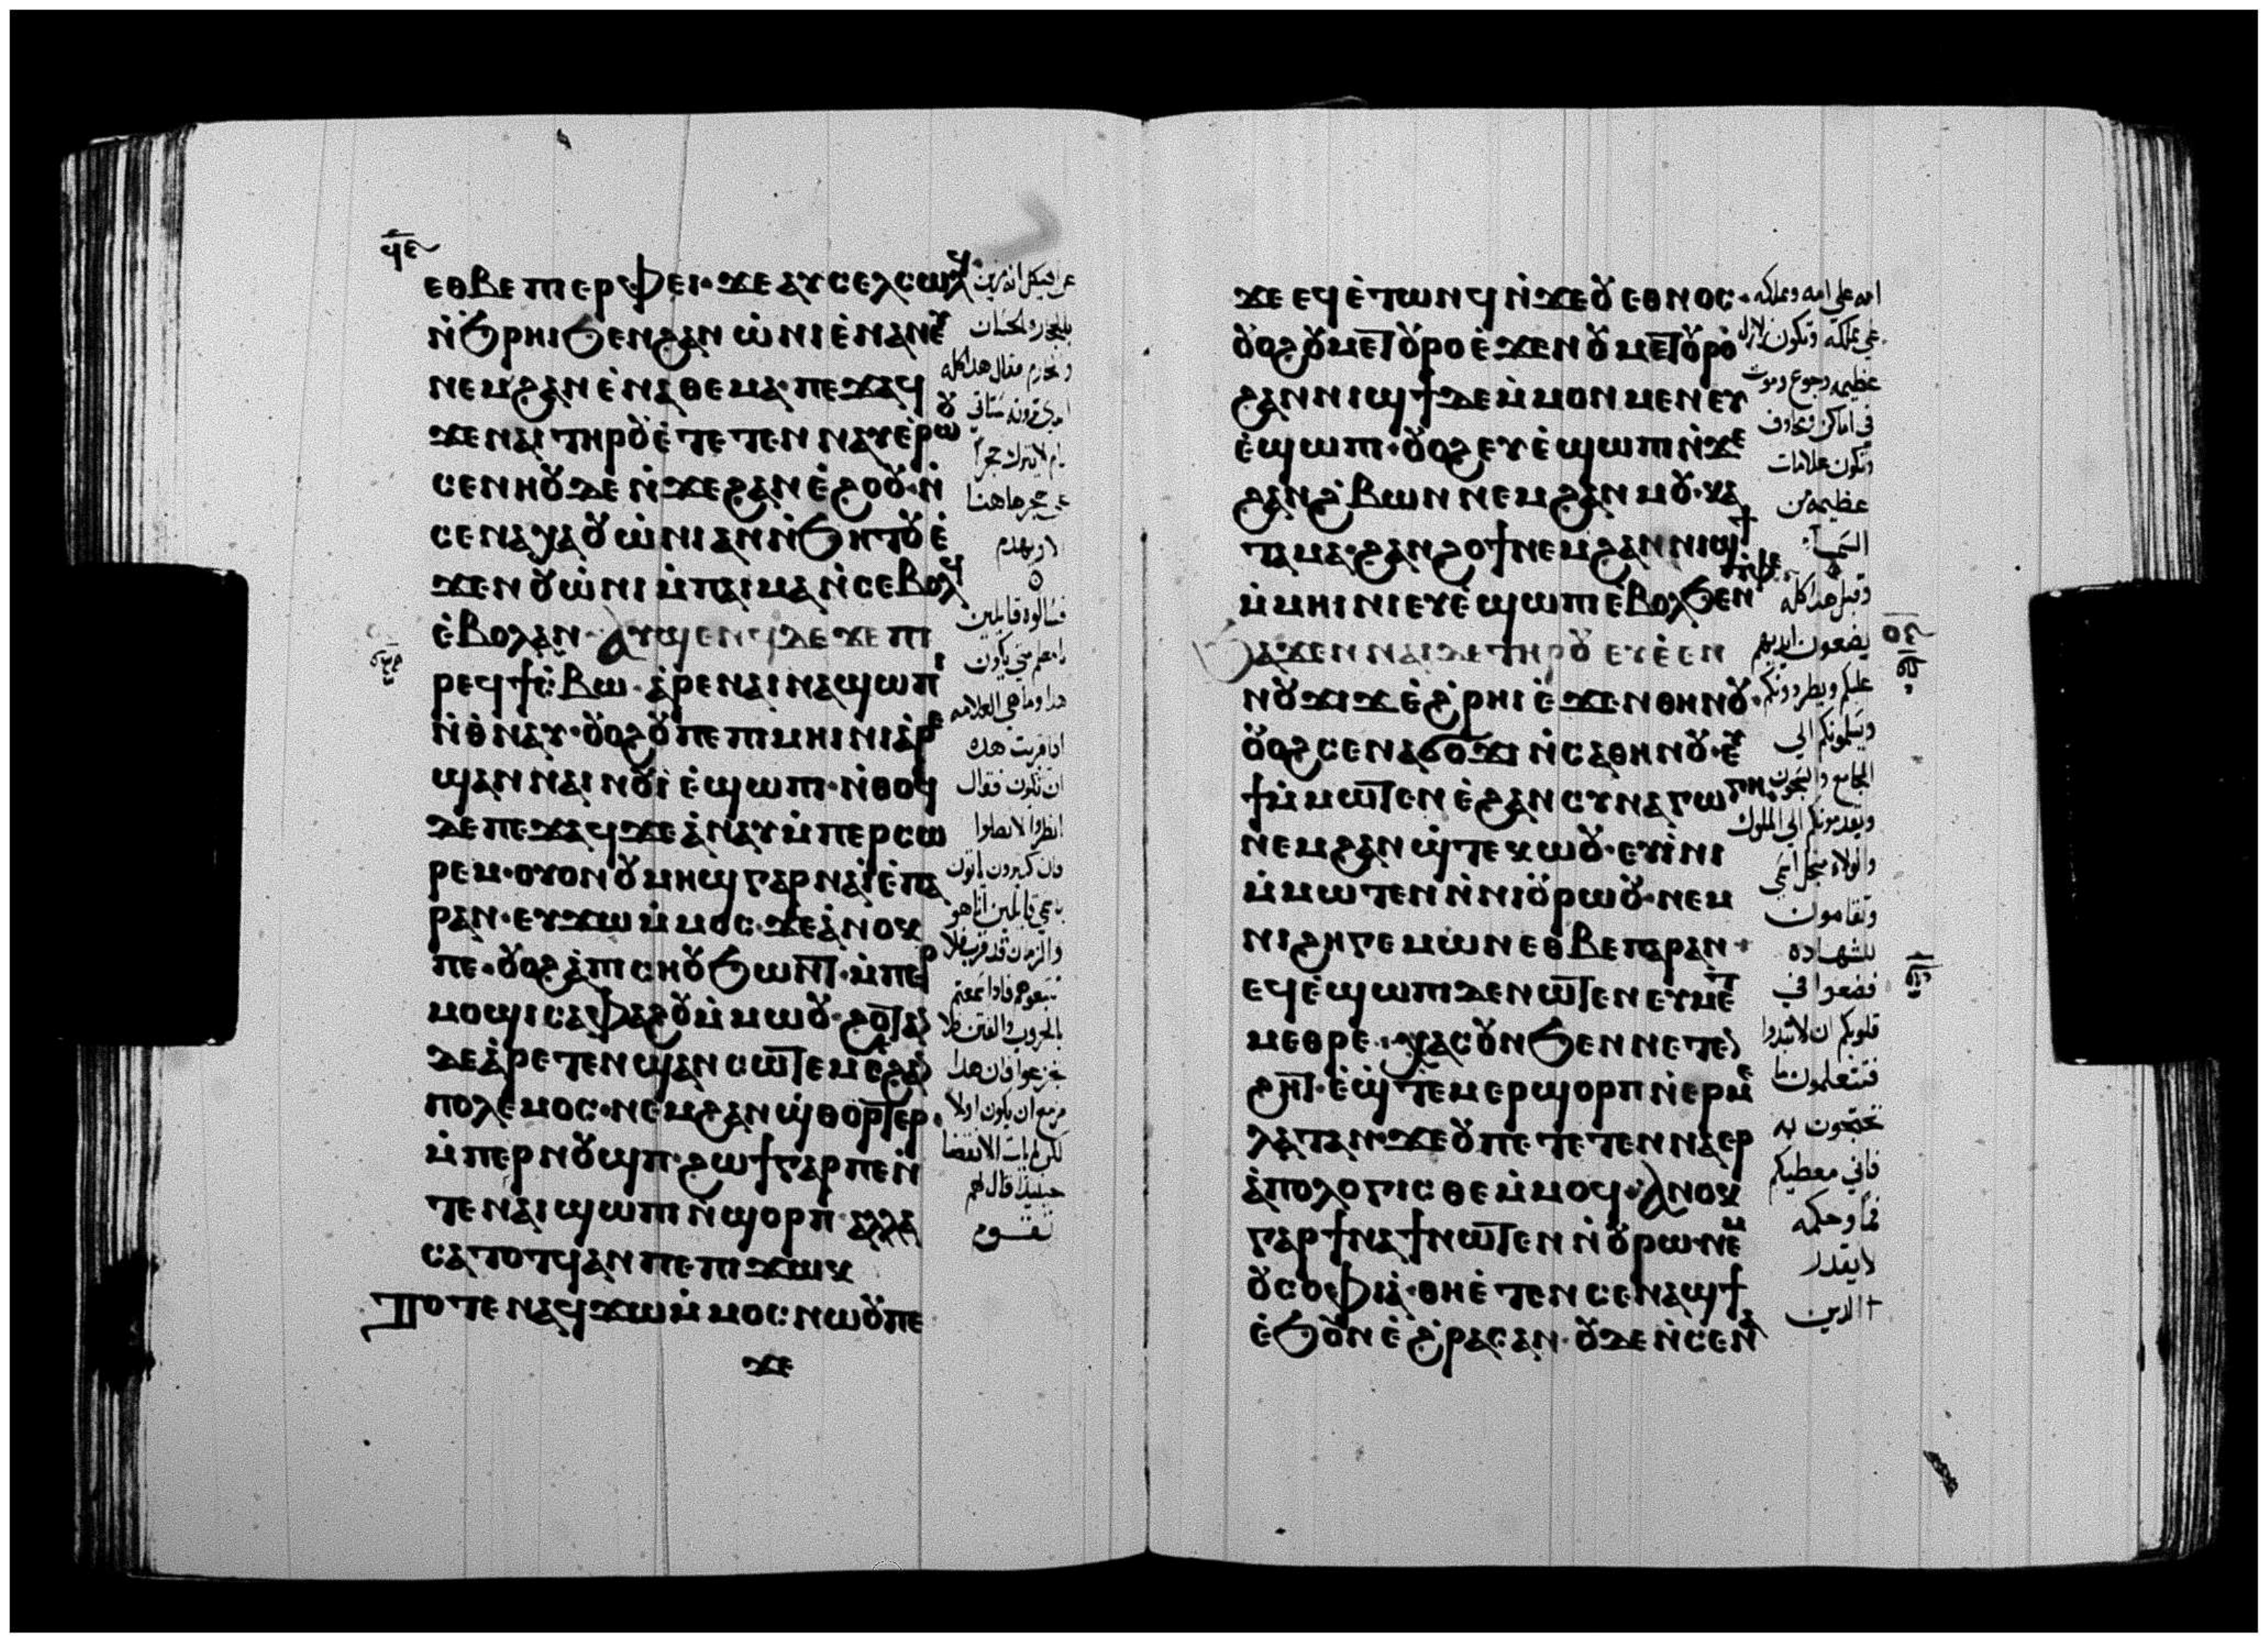 ϥⲉ
ⲉⲑⲃⲉ ⲡⲓⲉⲣⲫⲉⲓ· ϫⲉ ⲁⲩⲥⲉⲗⲥⲱⲗϥ
ⲛ̇ϧⲣⲏⲓ ϧⲉⲛ ϩⲁⲛ ⲱ̇ⲛⲓ ⲉ̇ⲛⲁⲛⲉⲩ
ⲛⲉⲙ ϩⲁⲛ ⲉ̇ⲛⲁⲑⲉⲙⲁ· ⲡⲉϫⲁϥ
ϫⲉ ⲛⲁⲓ ⲧⲏⲣⲟⲩ ⲉ̇ⲧⲉⲧⲉⲛⲛⲁⲩ ⲉ̇ⲣⲱⲟⲩ
ⲥⲉⲛⲏⲟⲩ ⲇⲉ ⲛ̇ϫⲉ ϩⲁⲛ ⲉ̇ϩⲟⲟⲩ· ⲛ̇
ⲥⲉⲛⲁⲭⲁ ⲟⲩⲱ̇ⲛⲓ ⲁⲛ ⲛ̇ϧⲏⲧⲟⲩ ⲉ̇
ϫⲉⲛ ⲟⲩⲱ̇ⲛⲓ ⲙ̇ⲡⲁⲓⲙⲁ ⲛ̇ⲥⲉⲃⲟⲗϥ
ⲉ̇ⲃⲟⲗ ⲁⲛ· ⲁⲩϣⲉⲛϥ ⲇⲉ ϫⲉ ⲡⲓ
ⲣⲉϥϯⲥ̇ⲃⲱ· ⲁ̇ⲣⲉ ⲛⲁⲓ ⲛⲁϣⲱⲡⲓ
ⲛ̇ⲑⲛⲁⲩ· ⲟⲩⲟϩ ⲟⲩ ⲡⲉ ⲡⲓⲙⲏⲓⲛⲓ ⲁ̇ⲣⲉ
ϣⲁⲛ ⲛⲁⲓ ⲛⲟⲩⲓ̇ ⲉ̇ϣⲱⲡⲓ· ⲛ̇ⲑⲟϥ
ⲇⲉ ⲡⲉϫⲁϥ ϫⲉ ⲁ̇ⲛⲁⲩ ⲙ̇ⲡⲉⲣⲥⲱ
ⲣⲉⲙ· ⲟⲩⲟⲛ ⲟⲩⲙⲏϣ ⲅⲁⲣ ⲛⲁⲓ̇ ⲉ̇ⲡⲁ
ⲣⲁⲛ· ⲉⲩϫⲱ ⲙ̇ⲙⲟⲥ· ϫⲉ ⲁ̇ⲛⲟⲕ
ⲡⲉ· ⲟⲩⲟϩ ⲁ̇ⲡⲓⲥⲏⲟⲩ ϧⲱⲛⲧ· ⲙ̇ⲡⲉⲣ
ⲙⲟϣⲓ ⲥⲁⲫⲁϩⲟⲩ ⲙ̇ⲙⲱⲟⲩ· ϩⲟⲧⲁⲛ
ⲇⲉ ⲁ̇ⲣⲉⲧⲉⲛϣⲁⲛⲥⲱⲧⲉⲙ ⲉϩⲁⲛ
ⲡⲟⲗⲉⲙⲟⲥ· ⲛⲉⲙ ϩⲁⲛ ϣ̇ⲑⲟⲣⲧⲉⲣ·
ⲙ̇ⲡⲉⲣⲛⲟⲩϣⲡ· ϩⲱϯ ⲅⲁⲣ ⲡⲉ ⲛ̇
ⲧⲉ ⲛⲁⲓ ϣⲱⲡⲓ ⲛ̇ϣⲟⲣⲡ· ⲁⲗⲗⲁ
ⲥⲁⲧⲟⲧϥ ⲁⲛ ⲡⲉ ⲡⲓϫⲱⲕ
ⲧⲟⲧⲉ ⲛⲁϥϫⲱ ⲙ̇ⲙⲟⲥ ⲛⲱⲟⲩ ⲡⲉ
ϫⲉ
عن الهيكل انه مزين
بالحجاره الحسان
فقال هدا كله
يهدم
هدا وما هي العلامه
ادا قربت هده
ان تكون فقال
انظروا لا تضلوا
فان كثيرون ياتون
باسمي قايلين انا هو
والزمان قد قرب فلا
تتبعوهم فادا سمعتم
بالحروب والفتن فلا
تجزعوا فان هدا
مزمع ان يكون اولا
حينيذ قال لهم
تقوم
ϫⲉ ⲉϥⲉ̇ⲧⲱⲛϥ ⲛ̇ϫⲉ ⲟⲩⲉⲑⲛⲟⲥ·
ⲟⲩⲟϩ ⲟⲩⲙⲉⲧⲟⲩⲣⲟ ⲉ̇ϫⲉⲛ ⲟⲩⲙⲉⲧⲟⲩⲣⲟ
ϩⲁⲛ ⲛⲓϣϯ ⲇⲉ ⲙ̇ⲙⲟⲛⲙⲉⲛ ⲉⲩ
ⲉ̇ϣⲱⲡⲓ· ⲟⲩⲟϩ ⲉⲩⲉ̇ϣⲱⲡⲓ ⲛ̇ϫⲉ
ϩⲁⲛ ϩ̇ⲃⲱⲛ ⲛⲉⲙ ϩⲁⲛ ⲙⲟⲩ· ⲕⲁ
ⲧⲁ ⲙⲁ· ϩⲁⲛ ϩⲟϯ ⲛⲉⲙ ϩⲁⲛ ⲛⲓϣϯ
ⲙ̇ⲙⲏⲓⲛⲓ ⲉⲩⲉ̇ϣⲱⲡⲓ ⲉⲃⲟⲗ ϧⲉⲛ ⲧⲫⲉ
ϧⲁϫⲉⲛ ⲛⲁⲓ ⲇⲉ ⲧⲏⲣⲟⲩ ⲉⲩⲉ̇ⲉⲛ
ⲛⲟⲩϫⲓϫ ⲉ̇ϩ̇ⲣⲏⲓ ⲉ̇ϫⲉⲛ ⲑⲏⲛⲟⲩ·
ⲟⲩⲟϩ ⲥⲉⲛⲁϭⲟϫⲓ ⲛ̇ⲥⲁ ⲑⲏⲛⲟⲩ· ⲉⲩ
ϯ ⲙ̇ⲙⲱⲧⲉⲛ ⲉ̇ϩⲁⲛ ⲥⲩⲛⲁⲅⲱⲅⲏ·
ⲛⲉⲙ ϩⲁⲛ ϣ̇ⲧⲉⲕⲱⲟⲩ· ⲉⲩⲓ̇ⲛⲓ
ⲙ̇ⲙⲱⲧⲉⲛ ⲛ̇ⲛⲓⲟⲩⲣⲱⲟⲩ· ⲛⲉⲙ
ⲛⲓϩⲏⲅⲉⲙⲱⲛ ⲉⲑⲃⲉ ⲡⲁⲣⲁⲛ·
ⲉϥⲉ̇ϣⲱⲡⲓ ⲇⲉ ⲛⲱⲧⲉⲛ ⲉⲩⲙⲉⲧ
ⲙⲉⲑⲣⲉ· ⲭⲁⲥ ⲟⲩⲛ ϧⲉⲛ ⲛⲉⲧⲉⲛ
ϩⲏⲧ· ⲉ̇ϣ̇ⲧⲉⲙⲉⲣϣⲟⲣⲡ ⲛ̇ⲉⲣⲙⲉ
ⲗⲁⲧⲁⲛ· ϫⲉ ⲟⲩ ⲡⲉⲧⲉⲧⲉⲛⲛⲁⲉⲣ
ⲁ̇ⲡⲟⲗⲟⲅⲓⲥⲑⲉ ⲙ̇ⲙⲟϥ· ⲁⲛⲟⲕ
ⲅⲁⲣ ϯⲛⲁϯ ⲛⲱⲧⲉⲛ ⲛ̇ⲟⲩⲣⲱ· ⲛⲉⲙ
ⲟⲩⲥⲟⲫⲓⲁ̇· ⲑⲏⲉ̇ⲧⲉⲛⲥⲉⲛⲁϣϯ
ⲉ̇ϧⲟⲩⲛ ⲉ̇ϩ̇ⲣⲁⲥ ⲁⲛ· ⲟⲩⲇⲉ ⲛ̇ⲥⲉⲛⲁ
امه علي امه ومملكه
علي مملكه وتكون زلازل
عظيمه وجوع وموت
في اماكن ومخاوف
وتكون علامات
عظيمه من
السما
وقبل هدا كله
يضعون ايديهم
عليكم ويطردونكم
ويسلمونكم الي
المجامع والسجون
ويقدمونكم الي الملوك
والولاه من اجل اسمي
للشهاده
فضعوا في
قلوبكم ان لا
تحتجون به
فاني معطيكم
فما وحكمه
لا يقدر
الدين